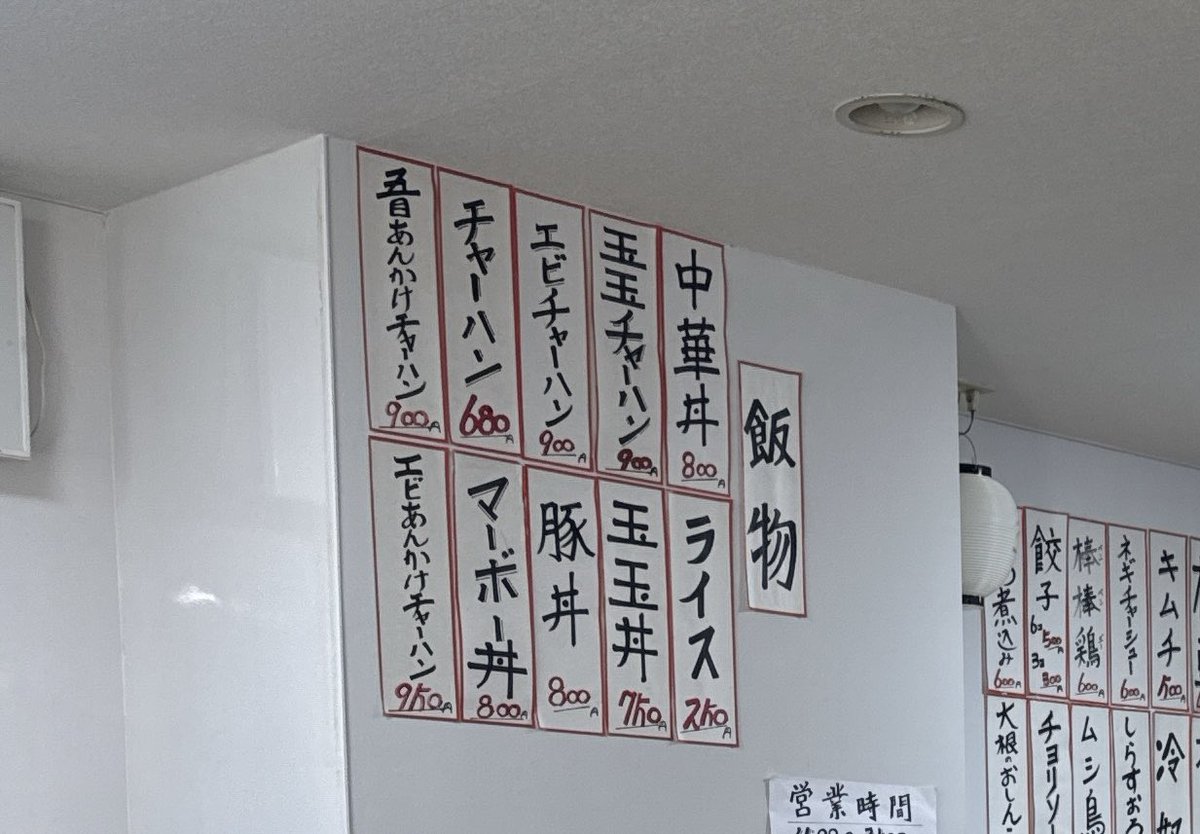 飯物
中華丼 800円
玉玉チャーハン 900円
エビチャーハン 900円
チャーハン 680円
五目あんかけチャーハン 900円
ライス 250円
玉玉丼 750円
豚丼 800円
マーボー丼 800円
エビあんかけチャーハン 950円
営業時間
キムチ 500円
ネギチャーシュー 600円
棒棒鶏 600円
餃子 6コ 500円 3コ 300円
煮込み 600円
しらすおろ
ムシ鳥
チョリソー
大根のおしん